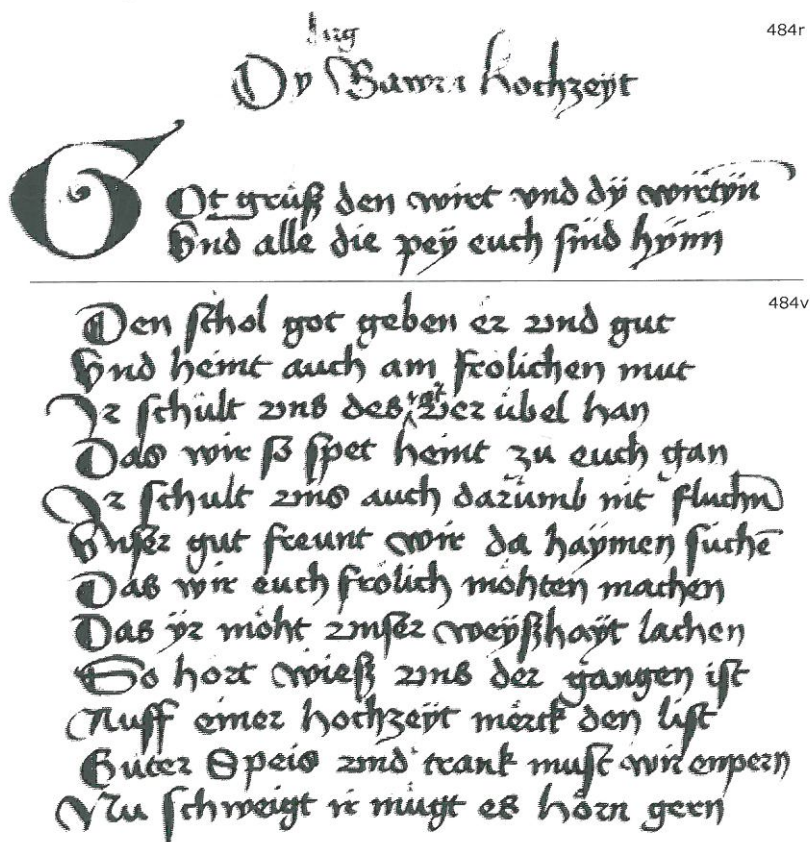 484r
Dy Bawrn hochzeyt
Got grüß den wirt vnd dÿ wirtÿn
Vnd alle die peÿ euch sind hÿnn
484v
Den schol got geben er vnd gut
Vnd heint auch am frolichen mut
Ir schült vns des nit ver übel han
Das wir so spet heint zu euch gan
Ir schult vns auch darümb nit fluchn
Vnser gut freunt wir da haÿmen suchē
Das wir euch frölich möhten machen
Das ÿr möht vnser weÿßhaÿt lachen
So hört wieß vns der gangen ist
Auff einer hochzeÿt mörck den list
Guter Speis vnd trank must wir enpern
Nu schweigt ir mügt es hörn gern